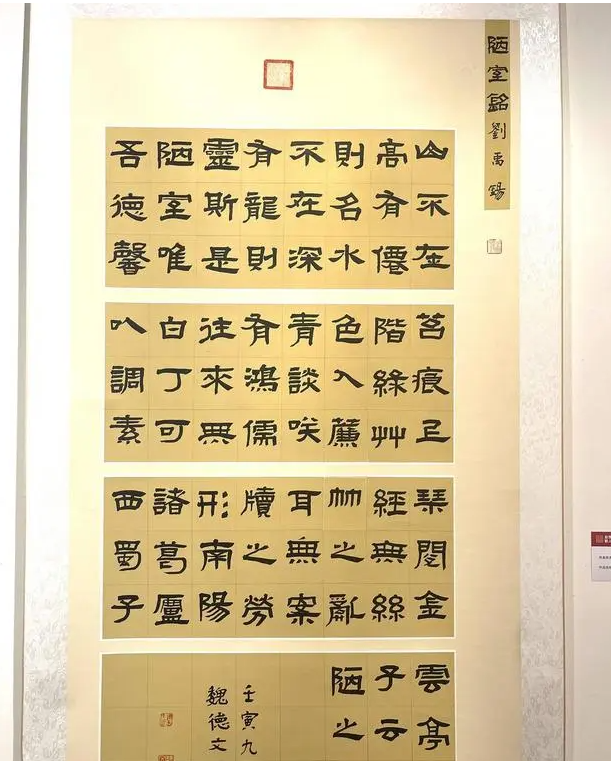 陋室銘劉禹錫
山不在
高有僊
則名水
不在深
有龍則
靈斯是
陋室唯
吾德馨
苔痕上
階綠艸
色入簾
青談咲
有鴻儒
往來無
白丁可
以調素
琴閱金
經無絲
竹之亂
耳無案
牘之勞
形南陽
諸葛廬
西蜀子
雲亭
子云
陋之
壬寅九
魏德文